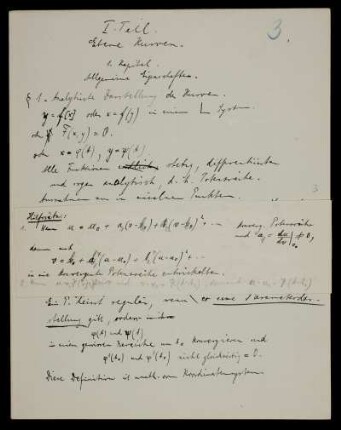 3.
I. Teil.
Ebene Kurven.
1. Kapitel.
Allgemeine Eigenschaften.
§ 1. Analytische Darstellung der Kurven.
y = f(x) oder x = f(y) in einem System.
oder F(x,y) = 0.
oder x = φ(t), y = ψ(t).
Alle Funktionen stetig, differentiierbar
und sogar analytisch, d. h. Potenzreihe.
Ausnahmen an in einzelnen Punkten.
3
Hilfssatz:
Wenn u = u₀ + a₁(v-v₀) + a₂(v-v₀)² + ... konverg. Potenzreihe
und a₁ = ≠ 0,
dann auch
in eine konvergente Potenzreihe entwickelbar.
Ein P. heisst regulär, wenn er eine Parameterdar-
stellung gibt, sodass
φ(t) und ψ(t)
in einem gewissen Bereiche um t₀ konvergieren und
φ'(t₀) und ψ'(t₀) nicht gleichzeitig = 0.
Diese Definition ist unabh. vom Koordinatensystem.